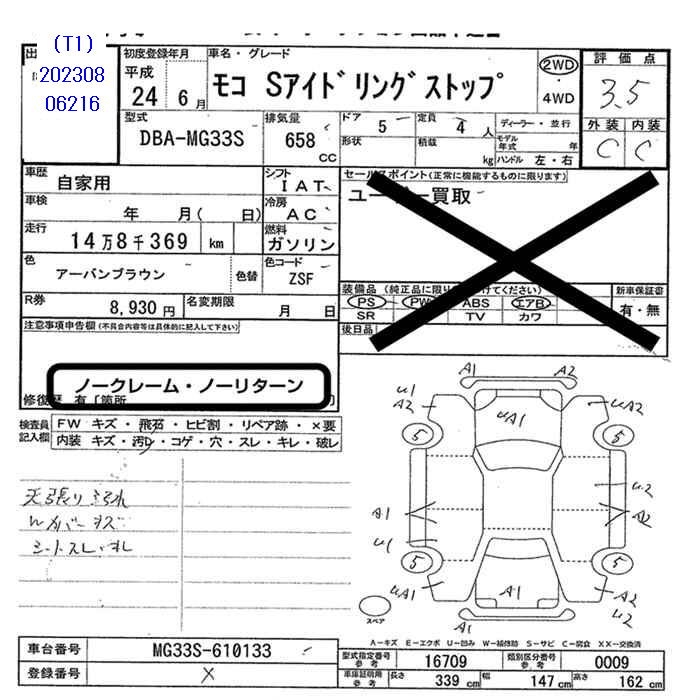 (T1)
202308
06216
初度登録年月
平成
24 6月
車名・グレード
モコ Sアイドリングストップ
2WD
・
4WD
評価点
3.5
外装 内装
C C
型式
DBA-MG33S
排気量
658
CC
ドア 5
形状
定員 4人
積載 kg
ディーラー・並行
モデル年式 年
ハンドル 左・右
車歴
自家用
シフト
IAT
セールスポイント(正常に機能するものに限ります)
ユーザー買取
車検
年 月( 日)
冷房
AC
走行
14万8千369 km
燃料
ガソリン
色
アーバンブラウン
色替
色コード
ZSF
装備品
PS PW ABS エアB
SR TV カワ
新車保証書
有・無
後日品
R券
8,930円
名変期限
月 日
注意事項申告欄(不具合内容等は具体的に記入して下さい)
ノークレーム・ノーリターン
修復歴 有〔箇所
検査員
記入欄
FW キズ・飛石・ヒビ割・リペア跡・×要
内装 キズ・汚レ・コゲ・穴・スレ・キレ・破レ
天張り
シートスレ
A1 A2
U1
A2
UA1
UA2
5 5
U2
A1 A2
U1
5 5
UA1
A1
A2
U2
A1
スペア
A-キズ E-エクボ U-凹み W-補修跡 S-サビ C-腐食 XX-交換済
車台番号 MG33S-610133
登録番号 ×
型式指定番号
参考
16709
類別区分番号
参考
0009
車庫証明用
参考
長さ 339 cm 幅 147 cm 高さ 162 cm